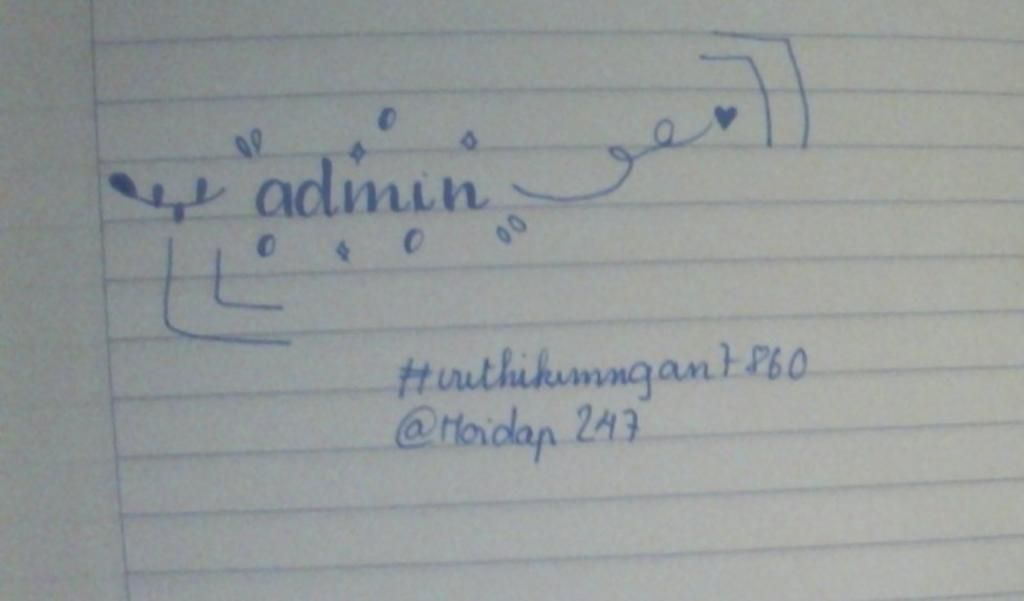 admin
#vuthikimngan7860
@Hoidap 247